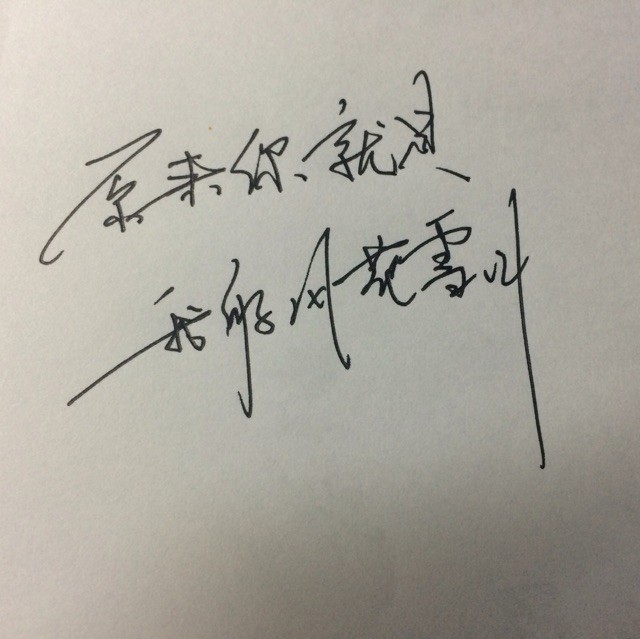 原来你就是
我的风花雪月